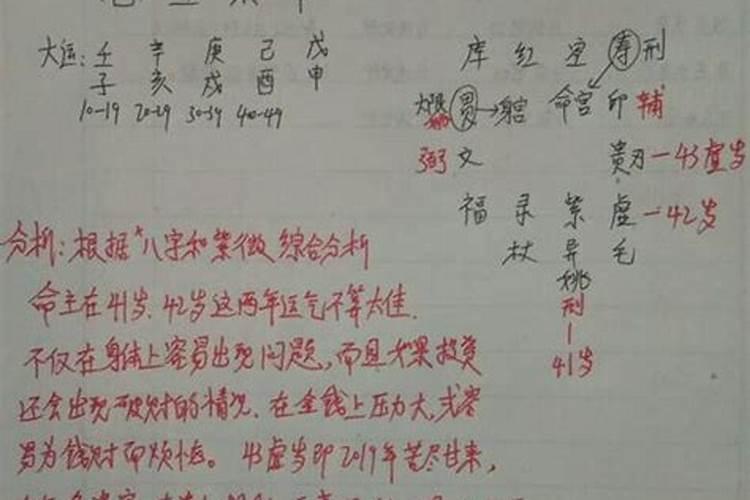 大运: 壬 辛 庚 己 戊
子 亥 戌 酉 申
10-19 20-29 30-39 40-49
库 红 空 寿 刑
大限 贯→ 身宫 命宫 印 辅
弼 文 贵刃-43虚岁
福 录 紫 虚-42岁
杖 异 毛
姚
刑
41岁
分析: 根据八字和紫微综合分析
命主在41岁、42岁这两年运气不算太佳.
不仅在身体上容易出现问题,而且如果投资
还会出现破财的情况、在金钱上压力大,或容
易为钱财而烦恼。 43虚岁即2019年苦尽甘来,